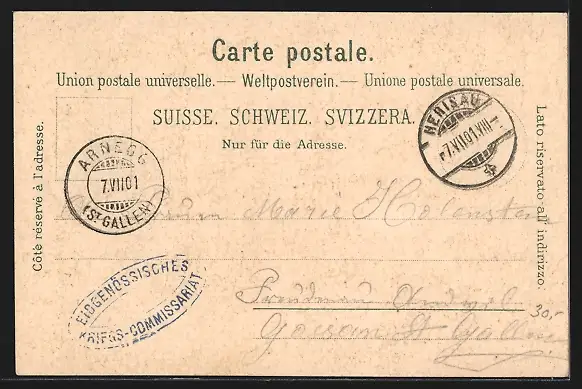 Carte postale.
Union postale universelle. — Weltpostverein. — Unione postale universale.
SUISSE. SCHWEIZ. SVIZZERA.
Nur für die Adresse.
Côté réservé à l'adresse.
Lato riservato all' indirizzo.
HERISAU
7.VII.01.VIII
ARNEGG
7.VII.01
(ST GALLEN)
Marie
EIDGENÖSSISCHES
KRIEGS-COMMISSARIAT
St Gallen
30.-